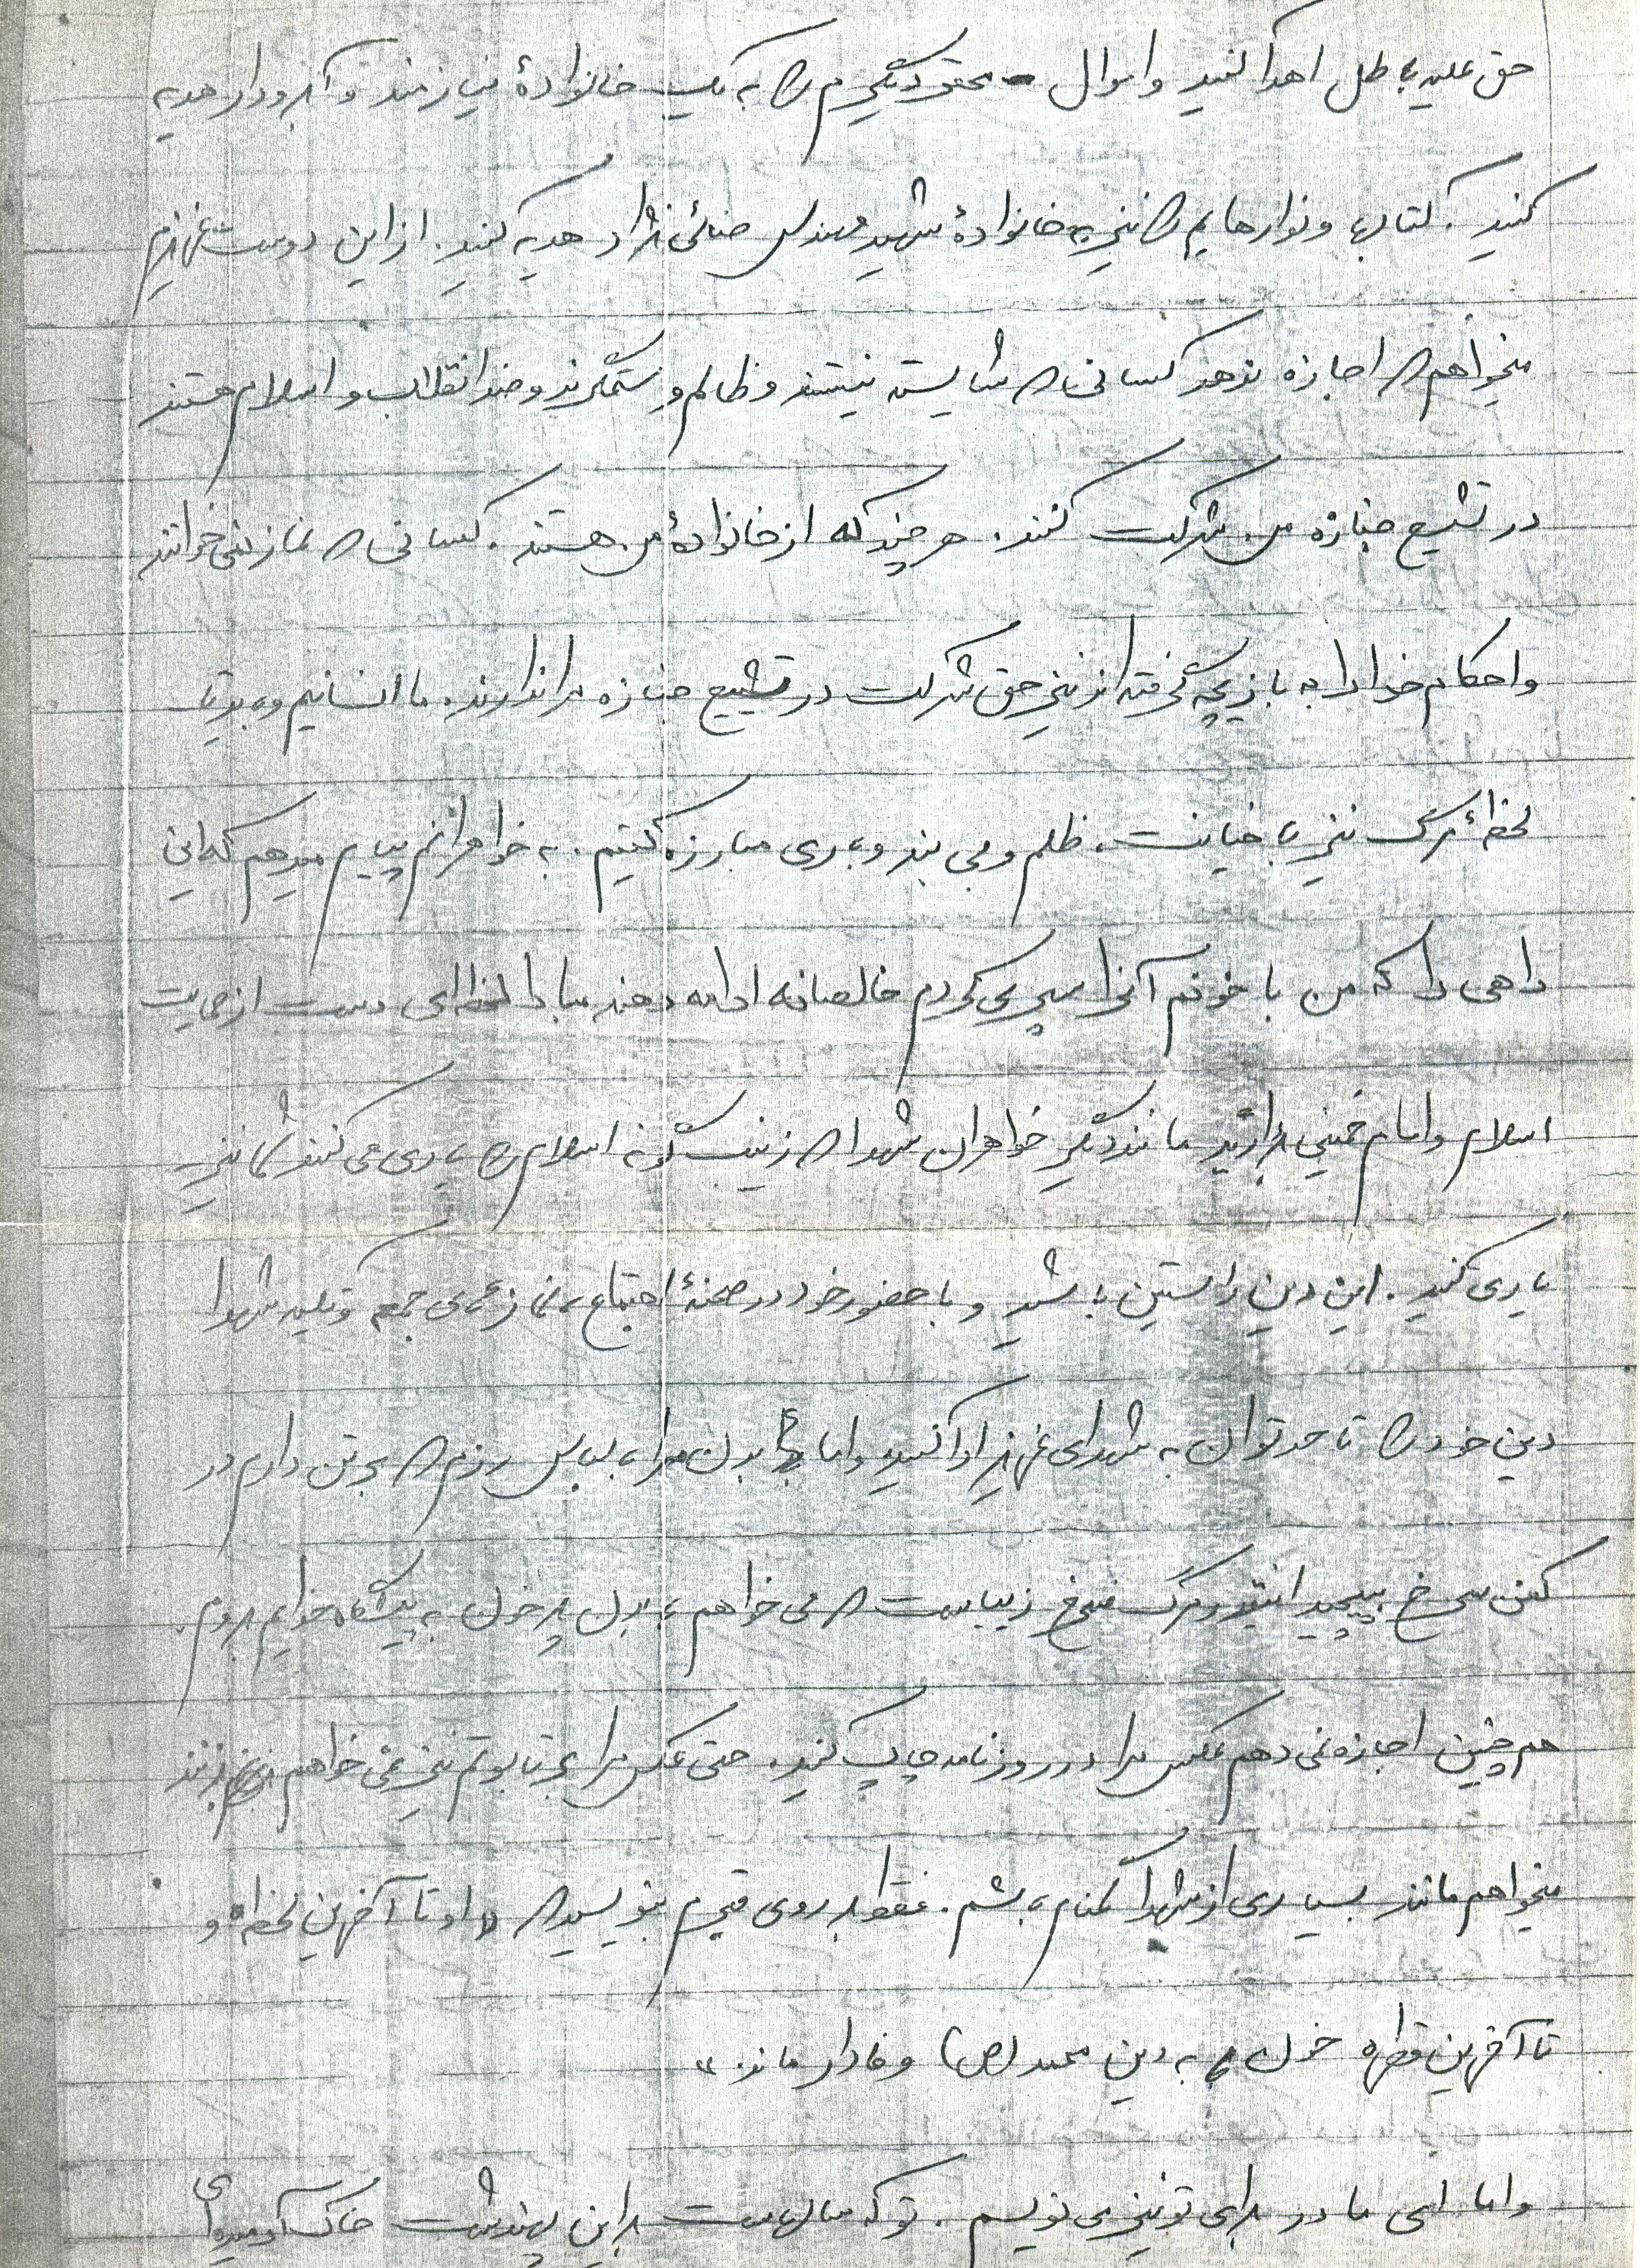 حق علیه باطل اهدا کنید و اموال محقر دیگرم را به یک خانوادهٔ نیازمند و آبرودار هدیه
کنید. کتابها و نوارهایم را نیز به خانوادهٔ شهید مهندس صنائی نژاد هدیه کنید. از این دوست عزیزم
میخواهم که اجازه ندهد کسانی که شایسته نیستند و ظالم و ستمگرند و ضد انقلاب و اسلام هستند
در تشیع جنازه من شرکت کنند. هر چند که از خانوادهٔ من هستند. کسانی که نماز نمی خوانند
و احکام خدا را به بازیچه گرفته اند نیز حق شرکت در تشیع جنازه مرا ندارند. ما انسانیم و باید تا
لحظهٔ مرگ نیز با خیانت، ظلم و بی بند و باری مبارزه کنیم. به خواهرانم پیام میدهم که این
راهی را که من با خونم آنرا سپری کردم خالصانه ادامه دهند مبادا لحظه ای دست از حمایت
اسلام و امام خمینی بردارید مانند دیگر خواهران شهدا که زینب گونه اسلام را یاری می کنند شما نیز
یاری کنید. این دین راستین باشید و با حضور خود در صحنهٔ اجتماع، نماز های جمعه و شهدا
دین خود را تا حد توان به شهدای عزیز ادا کنید و اما بدن مرا با لباس رزم که بر تن دارم در
کفن سرخ بپیچید مرگ سرخ زیباست که می خواهم با بدن پر خون به پیشگاه خدایم بروم.
هم چنین اجازه نمی دهم عکس مرا در روزنامه چاپ کنید. حتی عکس مرا بر تابوتم نیز نمی خواهم بزنند
میخواهم مانند بسیاری از شهدا گمنام باشم. فقط بر روی قبرم بنویسید که «او تا آخرین لحظه و
تا آخرین قطره خون به دین محمد (ص) وفادار ماند.»
و اما ای مادر برای تو نیز می نویسم. تو که سالهاست بر این پهندشت خاک